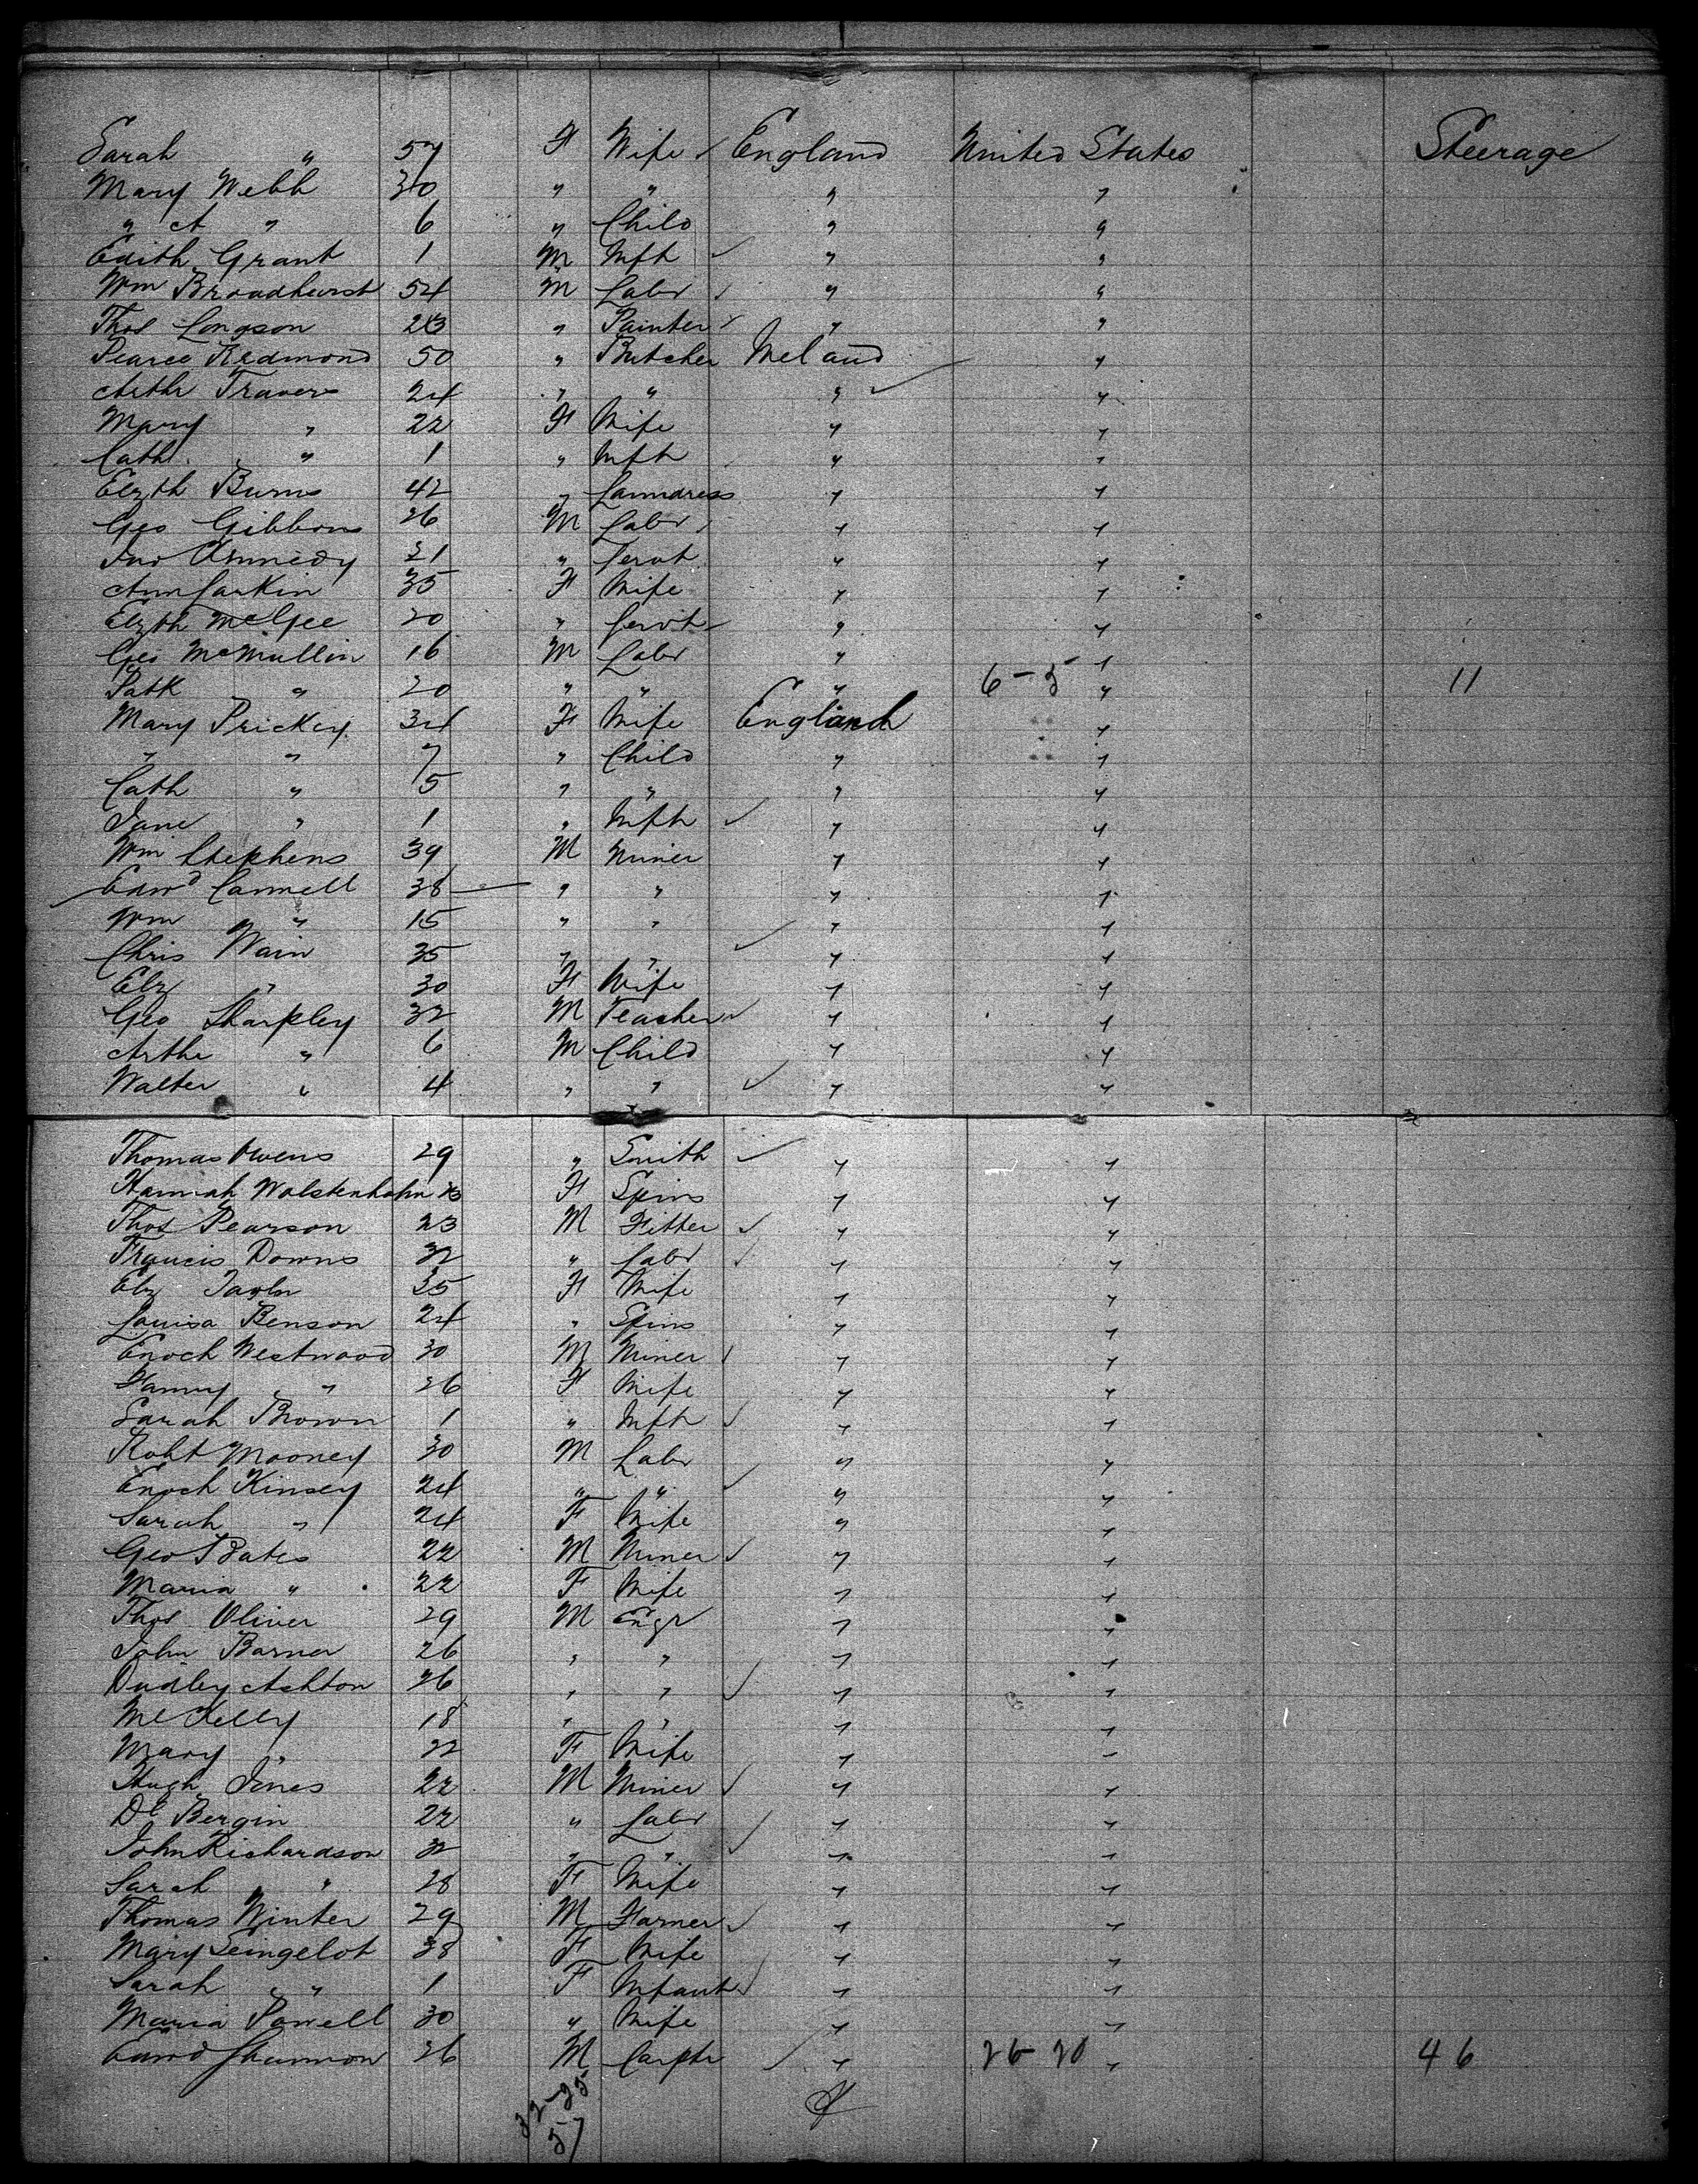 Sarah " 57 F Wife England United States Steerage
Mary Webb 30 " " " "
" A " 6 " Child " "
Edith Grant 1 M Inft " "
Wm Broadhurst 54 M Labr " "
Thos Longson 23 " Painter " "
Pearce Redmond 50 " Butcher Ireland "
Arthr Travers 24 " " " "
Mary " 22 F Wife " "
Cath " 1 " Inft " "
Elzth Burns 42 " Laundress " "
Geo Gibbons 26 M Labr " "
Jno Kennedy 21 " Servt " "
Ann Larkin 35 F Wife " "
Elzth McGee 20 " Servt " "
Geo McMullin 16 M Labr " "
Patk " 20 " " " 6-5 " 11
Mary Prickey 34 F Wife England "
" " 7 " Child " "
Cath " 5 " " " "
Jane " 1 " Inft " "
Wm Stephens 39 M Miner " "
Edwd Cannell 38 " " " "
Wm " 15 " " " "
Chris Wain 35 " " " "
Elz " 30 F Wife " "
Geo Sharpley 32 M Teacher " "
Arthr " 6 M Child " "
Walter " 4 " " " "
Thomas Owens 29 " Smith " "
Hannah Wolstenholm F Spins " "
Thos Pearson 23 M Fitter " "
Francis Downs 32 " Labr " "
Elz Taylor 35 F Wife " "
Louisa Benson 24 " Spins " "
Enoch Westwood 30 M Miner " "
Fanny " 26 F Wife " "
Sarah Brown 1 " Inft " "
Robt Mooney 30 M Labr " "
Enoch Kinsey 24 " " " "
Sarah " 24 F Wife " "
Geo Bates 22 M Miner " "
Maria " 22 F Wife " "
Thos Oliver 29 M Engr " "
John Barner 26 " " " "
Dudley Ashton 26 " " " "
Ml Kelly 18 " " " "
Mary " 22 F Wife " "
Hugh Jones 22 M Miner " "
Dl Bergin 22 " Labr " "
John Richardson 32 " " " "
Sarah " 28 F Wife " "
Thomas Winter 29 M Farmer " "
Mary 38 F Wife " "
Sarah " 1 F Infant " "
Maria Powell 30 " Wife " "
Edwd Shannon 26 M Carptr " 26-20 " 46
32-25
57